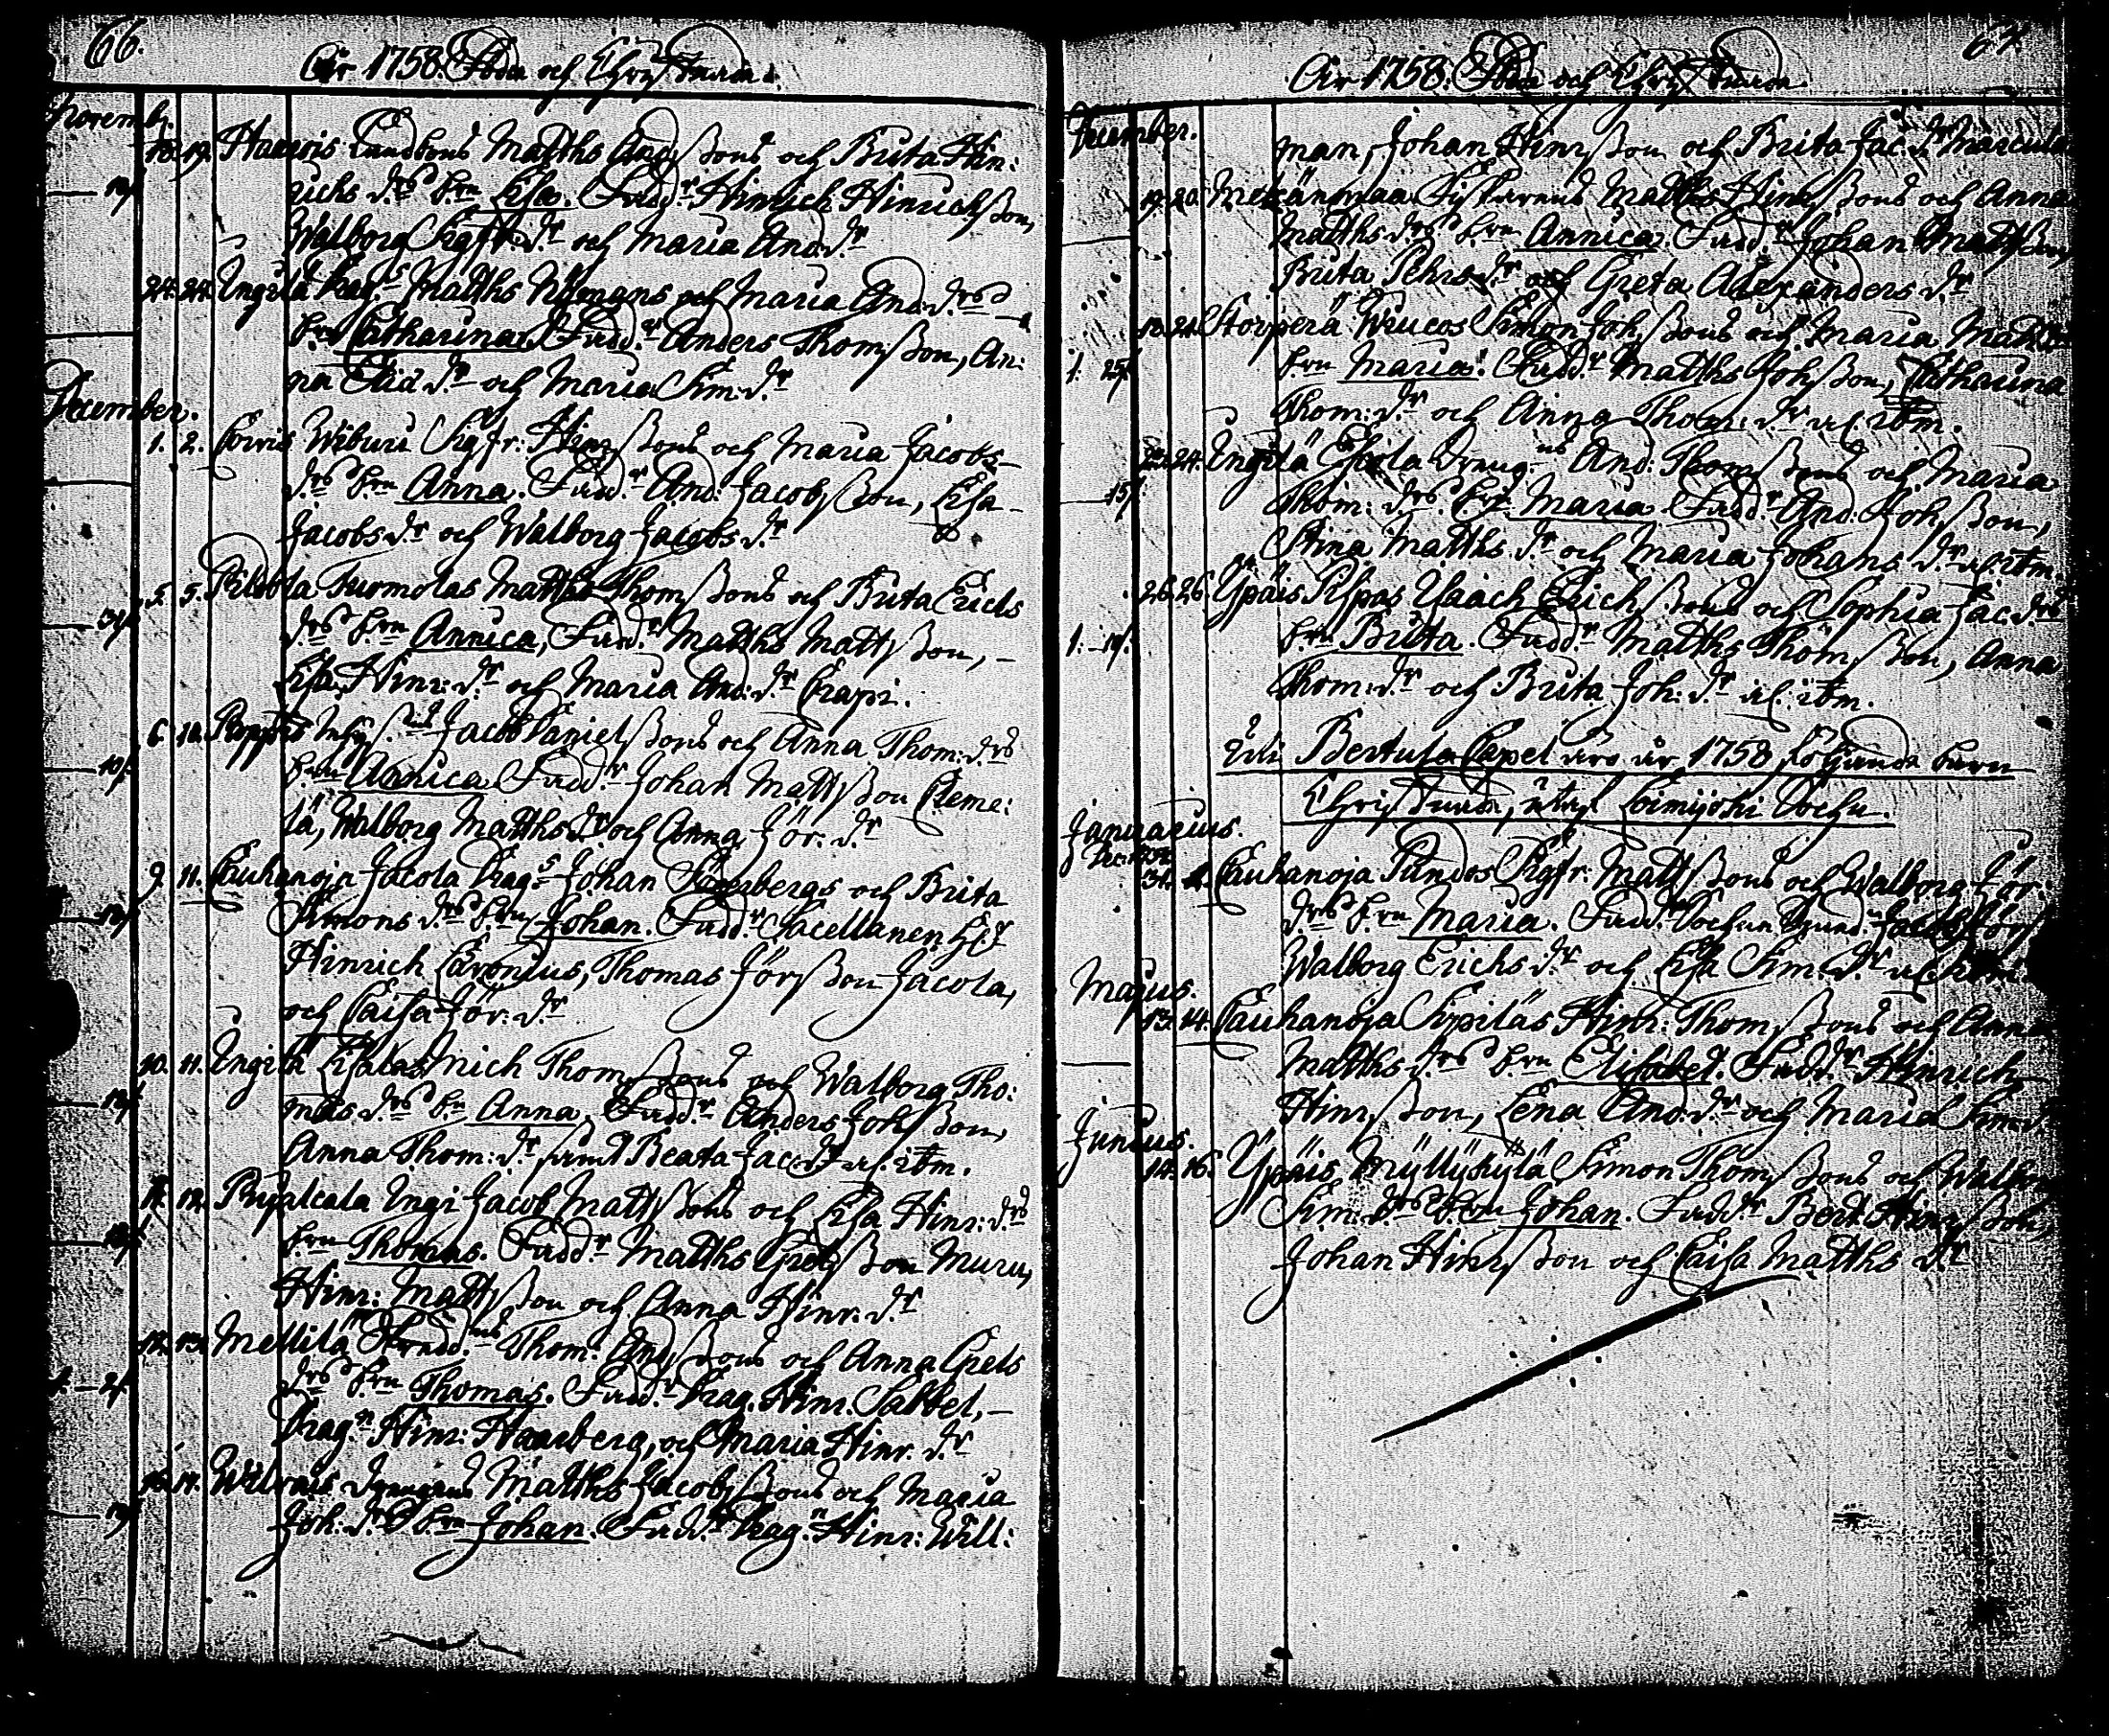 66.
År 1758. Födde och Christnade.
Novemb:
18. 19. Haavis Landbons Matths And:ssons och Brita Hin:
richs d:rs b:rn Lisa. Fadd:r Hinrich Hinrichsson,
Walborg Sigfr: d:r och Maria And: d:r
24. 24. Ingilä Drag:s Matths Nymans och Maria And: d:rs
b:rn Catharina. Fadd:r Anders Thomsson, An:
na d:r och Maria Sim: d:r
December.
1. 2. Coivis Wiburi Sigfr: Hinrssons och Maria Jacobs
d:rs b:rn Anna. Fadd:r And: Jacobsson, Lisa
Jacobs d:r och Walborg Jacobs d:r
5. 5. Pilbola Turmolas Matths Thomssons och Brita Erichs
d:rs b:rn Annica, Fadd:r Matths Mattsson,
Lisa Hinr: d:r och Maria And: d:r Crapi.
6. 10. Jacob Danielssons och Anna Thom: d:rs
b:rn Annica. Fadd:r Johan Mattsson Cleme:
lä, Walborg Matths d:r och Anna Jör: d:r
9. 11. Cauhanoja Jacola Drag:s Johan bergs och Brita
Simons d:rs b:rn Johan. Fadd:r Sacellanen H:r
Hinrich Cavonius, Thomas Jörsson Jacola,
och Caisa Jör: d:r
10. 11. Ingilä Lisalas Mich Thomssons och Walborg Tho:
mas d:rs b:n Anna. Fadd:r Anders Johsson,
Anna Thom: d:r samt Beata Jac: d:r
12. Pujalcala Ingi Jacob Mattssons och Lisa Hinr: d:rs
b:rn Thomas. Fadd:r Matths Grelsson Muru,
Hinr: Mattsson och Anna Hinr: d:r
Mellilä Thom: Andssons och Anna Grels
d:rs b:rn Thomas. Fadd:r Drag. Hinr: Sabbel,
Drag:n Hinr: Haarberg, och Maria Hinr: d:r
Matths Jacobssons och Maria
Joh: d:rs b:rn Johan. Fadd:r Drag:n Hinr: Will:
67.
År 1758. Födde och Christnade
December.
man, Johan Hinrsson och Brita Jac: d:r Marcula
19. 20. Mekänmaa Matths Hinrssons och Anna
Matths d:rs b:rn Annica. Fadd:r Johan Mattsson,
Brita Pehrs d:r och Greta Alexanders d:r
21. Storperä Wrucos Simon Johssons och Maria Matths
b:rn Maria. Fadd:r Matths Johsson, Catharina
Thom: d:r och Anna Thom: d:r
24. Ingilä And: Thomssons och Maria
Thom: d:rs b:n Maria. Fadd:r And: Johsson,
Stina Matths d:r och Maria Johans d:r
26. 26. Ypäis Pispas Isaach Erichssons och Sophia Jac: d:rs
b:rn Brita. Fadd:r Matths Thomsson, Anna
Thom: d:r och Brita Joh: d:r
Uti Bertula Capel äro år 1758 följande barn
Christnade, utaf Loimijoki Sochn.
Januarius.
31. Cauhanoja Pundos Sigfr: Mattssons och Walborg Jör:
d:rs b:rn Maria. Fadd:r
Walborg Erichs d:r och Lisa Sim: d:r
Majus.
13. 14. Cauhanoja Sepiläs Hinr: Thomssons och Anna
Matths d:rs b:rn Elisabet. Fadd:r Hinrich
Hinrsson, Lena And: d:r och Maria Sim: d:r
Junius.
14. 16. Ypäis Myllykylä Simon Thomssons och Walborg
Sim: d:rs b:rn Johan. Fadd:r Bert: Hinrsson,
Johan Hinrsson och Caisa Matths d:r